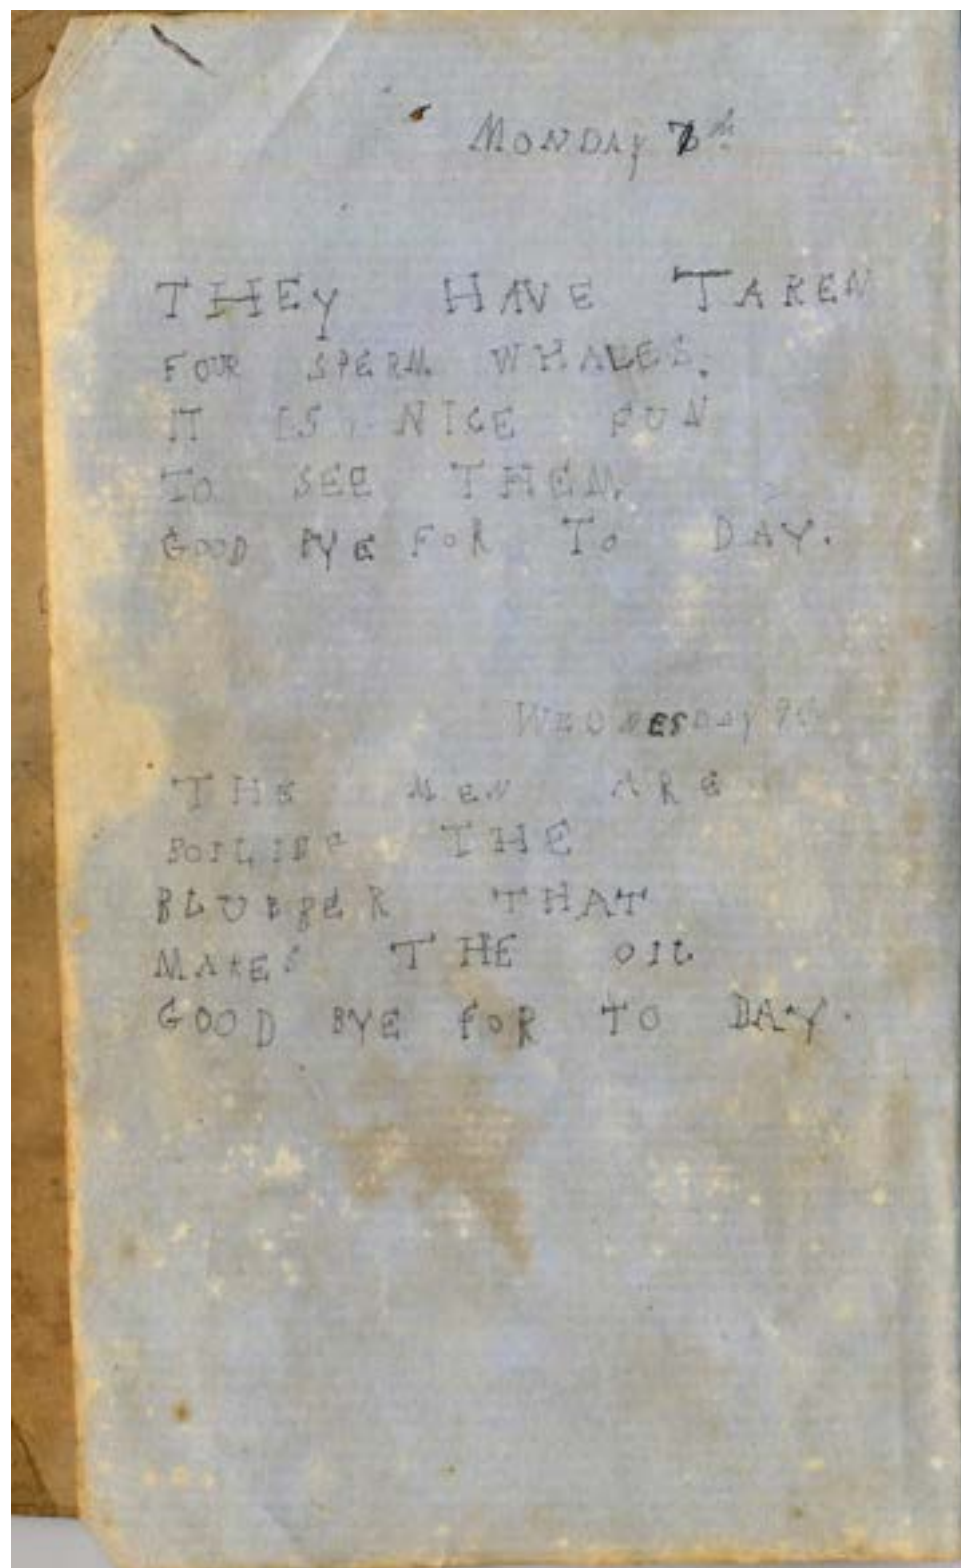 MONDAY 7th
THEY HAVE TAKEN
FOUR SPERM WHALES.
IT IS NICE FUN
TO SEE THEM.
GOOD BYE FOR TO DAY.
WEDNESDAY
THE MEN ARE
BOILING THE
BLUBBER THAT
MAKES THE OIL
GOOD BYE FOR TO DAY.